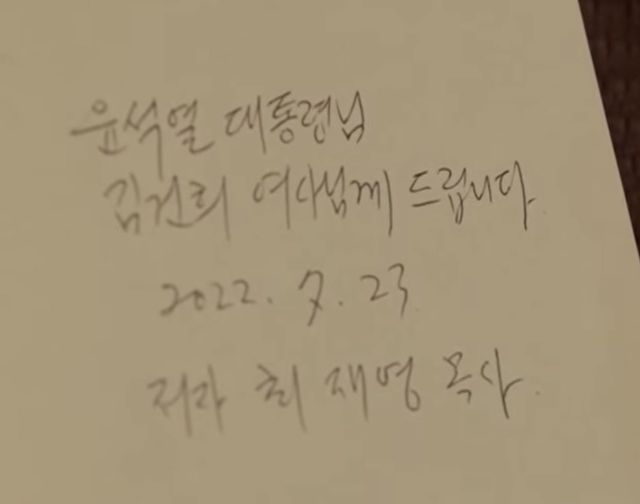 윤석열 대통령님
김건희 여사님께 드립니다.
2022. 7. 23
저자 최재영 목사.